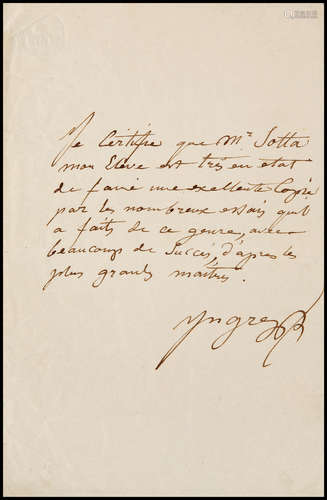 Je Certifie que Mr. Sotta
mon Elève est très en état
de faire une excellente Copie
par les nombreux essais qu'il
a faits de ce genre, avec
beaucoup de Succès, d'après les
plus grands maitres.
Yngres